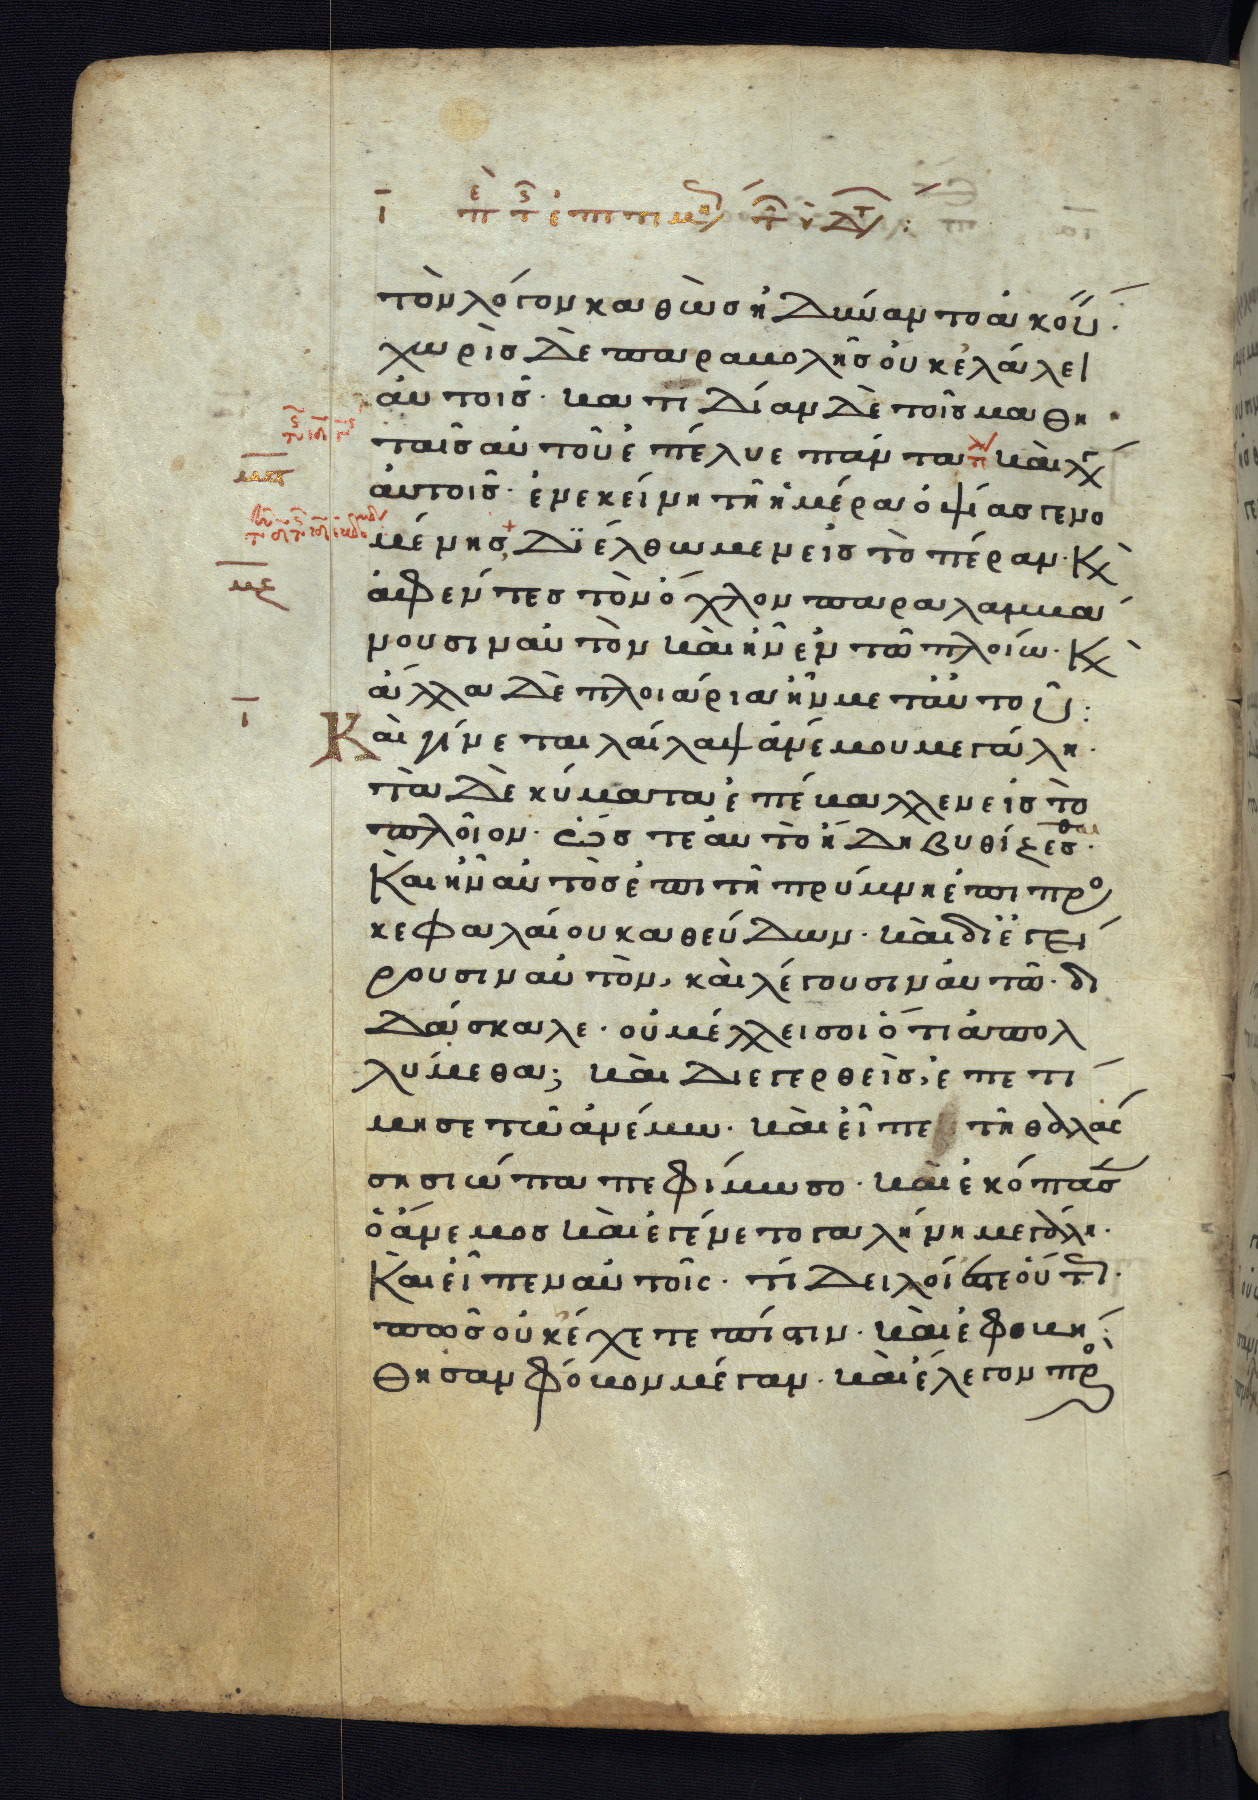 τὸν λόγον καθὼσ ἠδύναντο ἀκούειν·
χωρὶσ δὲ παραβολῆσ οὐκ ἐλάλει
αὐτοῖσ· κατιδίαν δὲ τοῖσ μαθη
ταῖσ αὐτοῦ ἐπέλυε πάντα καὶ λέγει
αὐτοῖσ· ἐν ἐκείνη τῆ ἡμέρα ὀψίασ γενο
μένησ, διέλθωμεν εἰσ τὸ πέραν· Κὶ
ἀφέντεσ τὸν ὄχλον παραλαμβά
νουσιν αὐτὸν καὶ ἦν ἐν τῶ πλοίω· Κὶ
ἄλλα δὲ πλοιάρια ἦν μετ' αὐτοῦ:
ῑ
Καὶ γίνεται λαίλαψ ἀνέμου μεγάλη·
τὰ δὲ κύματα ἐπέβαλλεν εἰσ τὸ
πλοῖον· ὥστε αὐτὸ ἤδη βυθίζεσθαι·
Καὶ ἦν αὐτὸσ ἐπὶ τῆ πρύμνη ἐπὶ προσ
κεφαλαίου καθεύδων· καὶ διεγεί
ρουσιν αὐτὸν, καὶ λέγουσιν αὐτῶ· δι
δάσκαλε· οὐ μέλλει σοι ὅτι ἀπολ
λύμεθα; καὶ διεγερθεὶσ, ἐπετί
μησε τῶ ἀνέμω· καὶ εἶπε τῆ θαλάσ
ση σιώπα πεφίμωσο· καὶ ἐκόπασεν
ὁ ἄνεμοσ καὶ ἐγένετο γαλήνη μεγάλη·
Καὶ εἶπεν αὐτοῖσ· τί δειλοί ἐστε οὕτω·
πῶσ οὐκ ἔχετε πίστιν· καὶ ἐφοβή
θησαν φόβον μέγαν· καὶ ἔλεγον πρὸσ